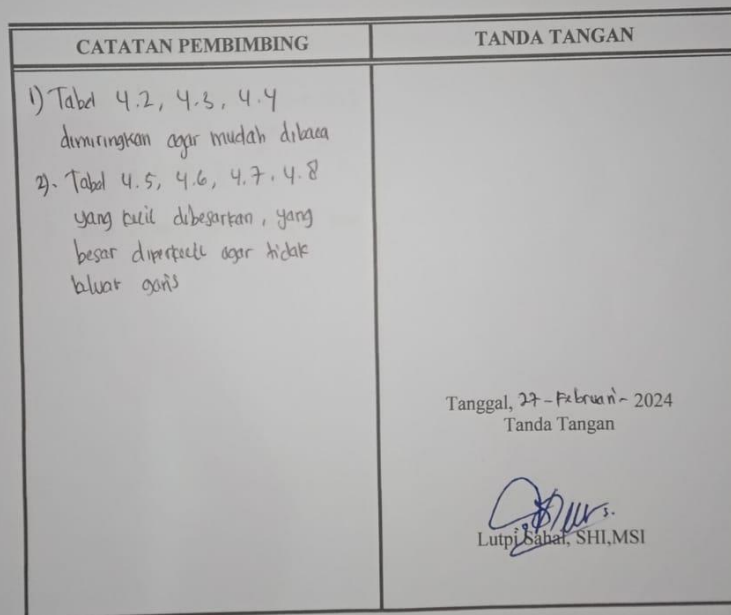 CATATAN PEMBIMBING
TANDA TANGAN
1) Tabel 4.2, 4.3, 4.4
dimiringkan agar mudah dibaca
2). Tabel 4.5, 4.6, 4.7, 4.8
yang kecil dibesarkan, yang
besar diperkecil agar tidak
keluar garis
Tanggal, 27-Februari-2024
Tanda Tangan
Lutpi Sahal, SHI,MSI